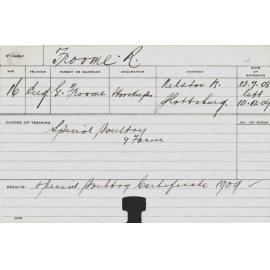 STUDENT Froome. R.
AGE RELIGION PARENT OR GUARDIAN OCCUPATION ADDRESS DATE OF ENTRANCE
16 Eng G. Froome Storekeeper Kelston St. 23.7.08
left
10.12.09
COURSE OF TRAINING NO. OF ROOM
Special Poultry
& Farm
RESULTS Special Poultry Certificate 1909
DATE